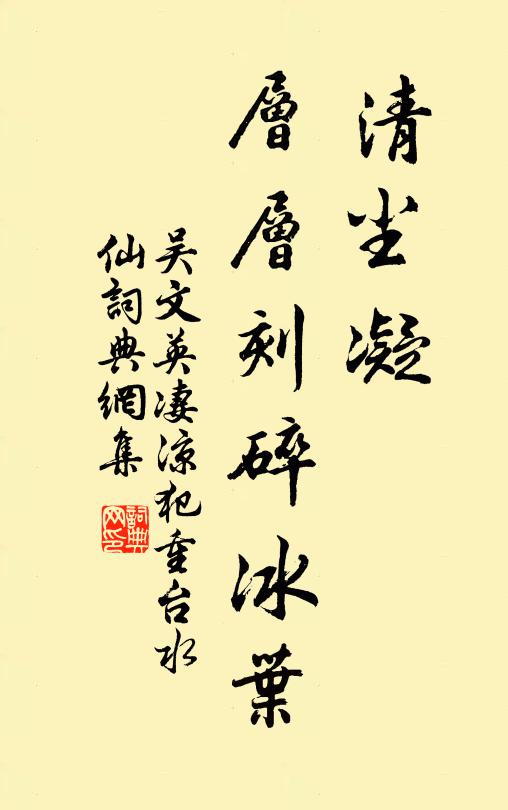 清尘凝
層層刻碎冰葉
吴文英凄涼犯重台水
仙詞典網集
詞典
网印